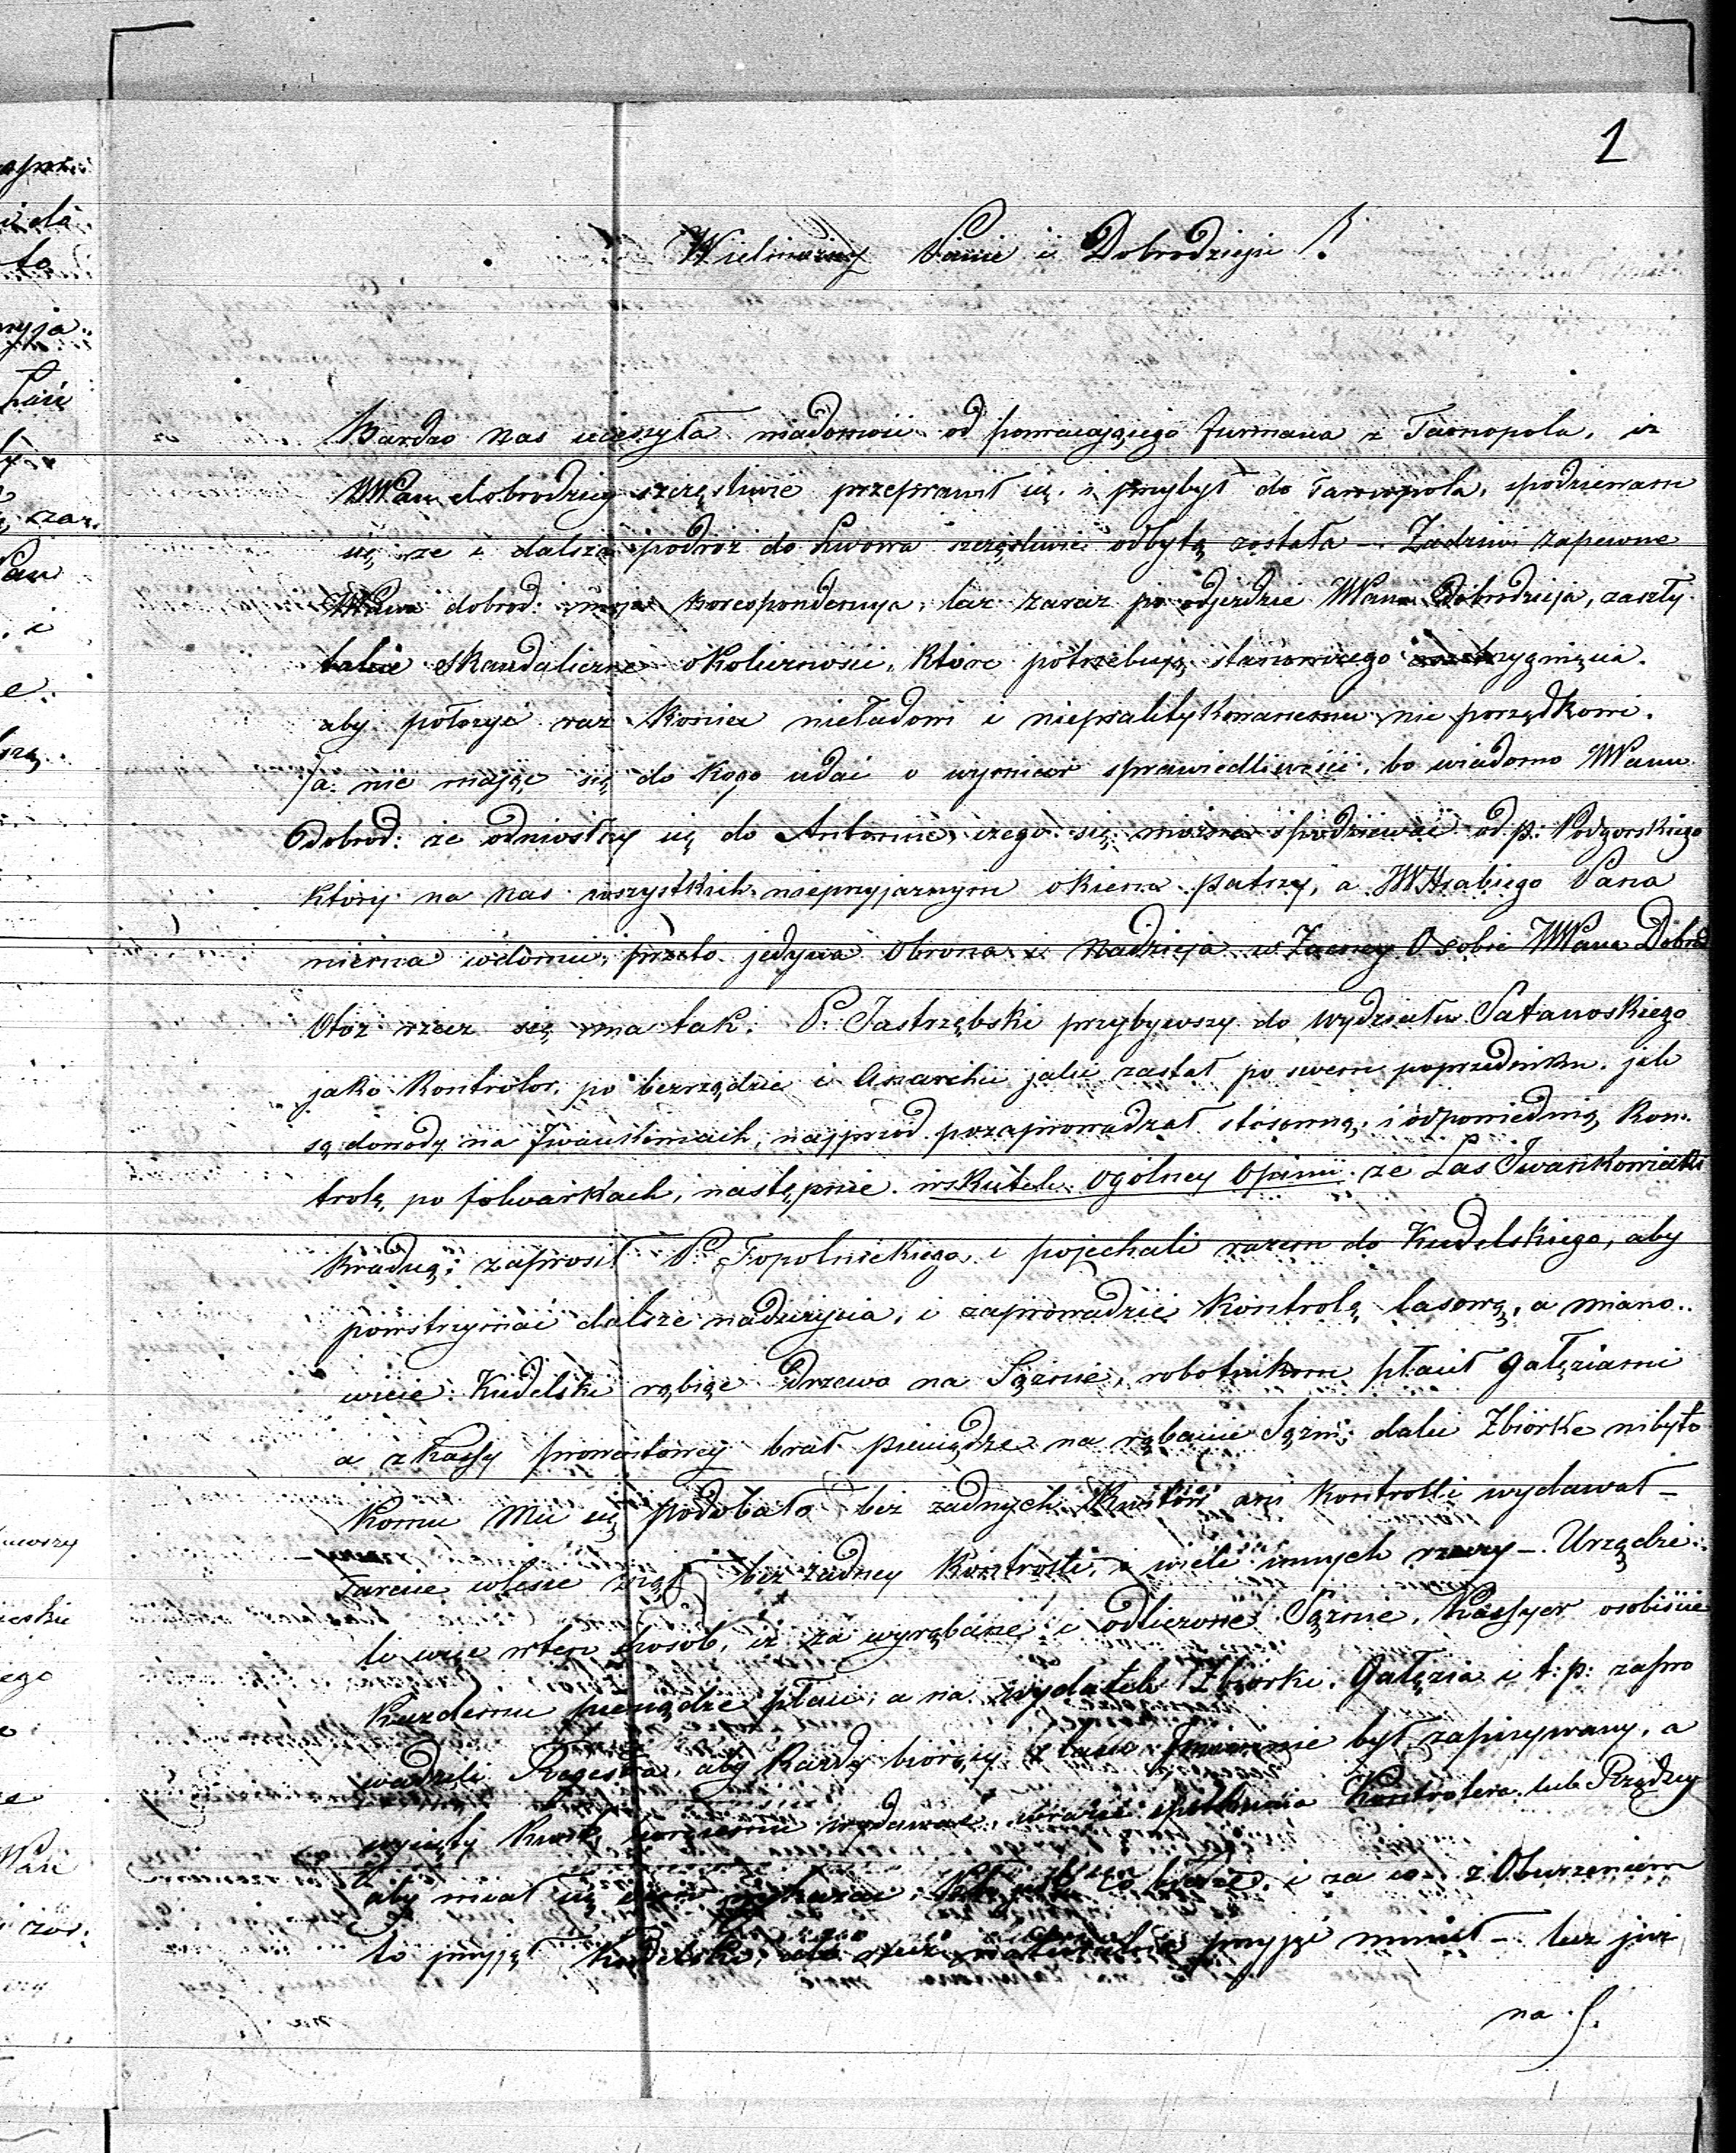 1
Wielmożny Panie i Dobrodzieju!
Bardzo nas ucieszyła wiadomość od powracającego furmana z Tarnopola, iż
WPan dobrodziej szczęsliwie przeprawił się i przybył do Tarnopola, spodziewam
się że i dalsza podróż do Lwowa szczęsliwie odbytą została — Zadziwi zapewne
WPana dobrod: moja korespondencya, lecz zaraz po odjezdzie WPana Dobrodzieja, zaszły
takie skandaliczne okoliczności, które potrzebują stanowczego rozstrzygnięcia.
aby położyć raz koniec nieładowi i niepraktykowanemu nie porządkowi.
ja nie mając się do kogo udać o wymiar sprawiedliwości, bo wiadomo WPanu
Dobrod: że odniosłszy się do Antonin, czego się można spodziewać od p: Podgorskiego
który na nas wszystkich nieprzyjaznym okiem patrzy, a JWHrabiego Pana
niema w domu, przeto jedyna Obrona i Nadzieja w Zacney Osobie WPana Dobrod
Otoż rzecz się ma tak: P. Jastrzębski przybywszy do wydziału Satanoskiego
jako Kontrolor, po bezrządzie i Anarchii jakie zastał po swem poprzedniku, jak
są dowody na Iwankowcach, najprzód pozaprowadzał stósowną i odpowiednią Kon-
trolę, po folwarkach, następnie wskutek ogólney Opinii że Las Iwankowiecki
kradną, zaprosił P. Topolnickiego i pojechali razem do Kudelskiego, aby
powstrzymać dalsze nadużycia, i zaprowadzić Kontrolę lasową, a miano-
wicie: Kudelski rąbiąc Drzewo na Sążnie, robotnikom płacił gałęziami
a z Kassy prowentowey brał pieniądze na rąbanie Sążni; dalei Zbiórkę nibyto
komu Mu się podobało bez żadnych Kwitów ani kontrolli wydawał —
Tarcie w lesie bez żadney Kontrolli, i wiele innych rzeczy — Urządzi-
li więc w ten sposob, iż za wyrąbane i odliczone Sążnie, Kassyer osobiście
Każdemu pieniądze płaci, a na wydatek Zbiorki, Gałęzia i t: p: zapro
wadzili Regestra, aby każdy biorący z lasu Imiennie był zapisywany, a
kwit biorącemu wydawać, w razie spotkania Kontrolera lub Rządzcy
aby miał się czem wykazać, co bierze, i za co. z Oburzeniem
to przyjął Kudelski, ale przyjąć musiał — lecz już
na S.